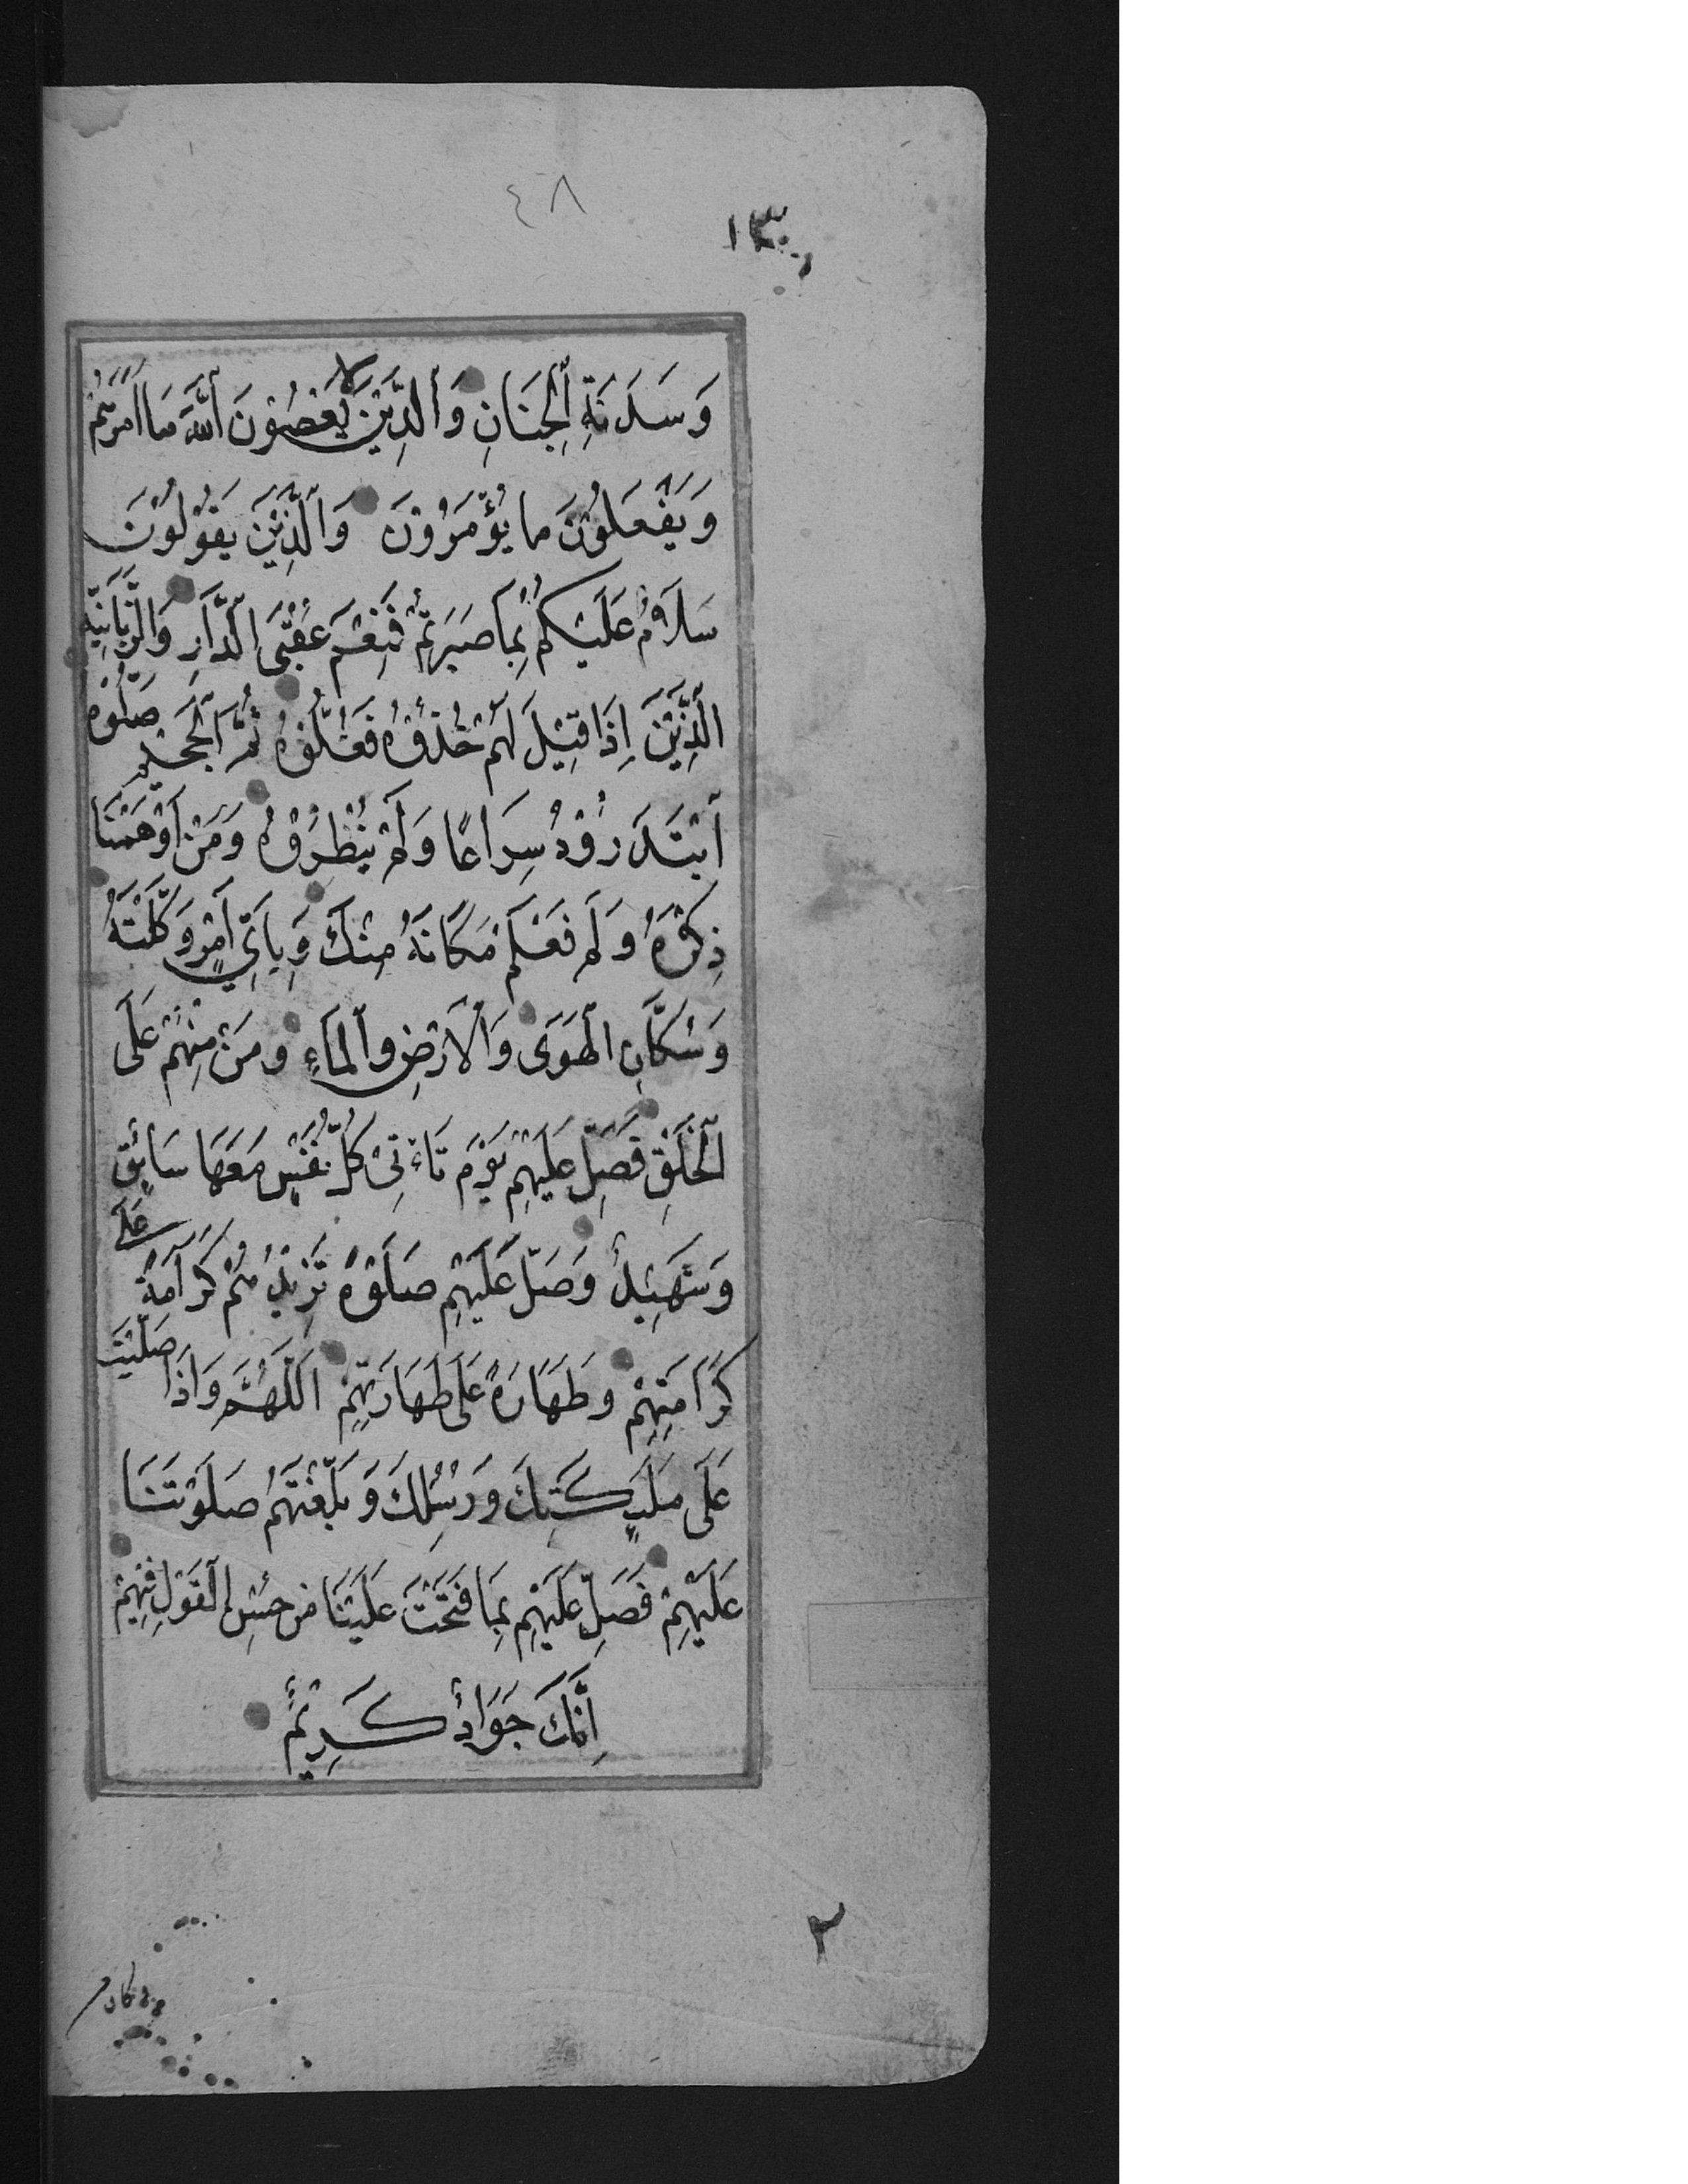 ٤٨
١٣٠
وَسَدَنَةِ الْجِنَانِ وَالَّذِيْنَ لَا يَعْصُوْنَ اللّٰهَ مَا اَمَرَهُمْ
وَيَفْعَلُوْنَ ما يُؤْمَرُوْنَ وَالَّذِيْنَ يَقُوْلُوْنَ
سَلَامٌ عَلَيْكُمْ بِمَا صَبَرْتُمْ فَنِعْمَ عُقْبَى الدَّارِ وَالزَّبَانِيَةِ
الَّذِيْنَ اِذَا قِيْلَ لَهُمْ خُذُوْهُ فَغُلُّوْهُ ثُمَّ الْجَحِيْمَ صَلُّوْهُ
ابْتَدَرُوْهُ سِرَاعًا وَلَمْ يُنْظِرُوْهُ وَمَنْ اَوْهَمْنَا
ذِكْرَهُ وَلَمْ نَعْلَمْ مَكَانَهُ مِنْكَ وَبِاَيِّ اَمْرٍ وَكَّلْتَهُ
وَسُكَّانِ الْهَوَى وَالْاَرْضِ وَالْمَاءِ وَمَنْ مِنْهُمْ عَلَى
الْخَلْقِ فَصَلِّ عَلَيْهِمْ يَوْمَ تَاْتِيْ كُلُّ نَفْسٍ مَعَهَا سَائِقٌ
وَشَهِيْدٌ وَصَلِّ عَلَيْهِمْ صَلٰوةً تَزِيْدُهُمْ كَرَامَةً عَلٰى
كَرَامَتِهِمْ وَطَهَارَةً عَلَى طَهَارَتِهِمْ اَللّٰهُمَّ وَاِذَا صَلَّيْتَ
عَلَى مَلٰئِكَتِكَ وَرُسُلِكَ وَبَلَّغْتَهُمْ صَلٰوتَنَا
عَلَيْهِمْ فَصَلِّ عَلَيْهِمْ بِمَا فَتَحْتَ عَلَيْنَا مِنْ حُسْنِ الْقَوْلِ فِيْهِمْ
اِنَّكَ جَوَادٌ كَرِيْمٌ